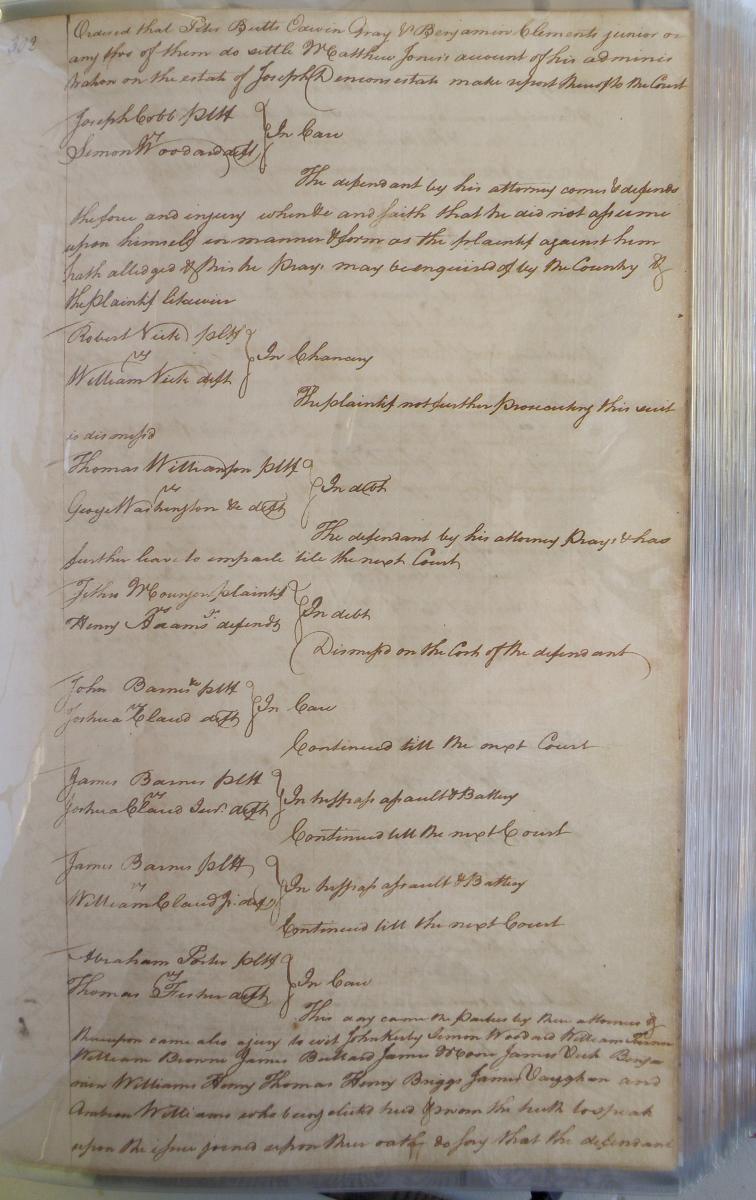 Ordered that Peter Butts Edwin Gray & Benjamin Clements junior or
any two of them do settle Matthew Jones's account of his adminis
tration on the estate of Joseph make report thereof to the Court
Joseph Cobb pltf
vs
Simon Woodard deft
In Case
The defendant by his attorney comes & defends
the force and injury when &c and saith that he did not assume
upon himself in manner & form as the plaintif against him
hath alledged & this he prays may be enquired of by the Country &
the plaintif likewise
Robert Vick pltf
vs
William Vick deft
In Chancery
The plaintif not further prosecuting this suit
is dismissd
Thomas Williamson pltf
vs
George Washington &c deft
In debt
The defendant by his attorney prays & has
further leave to emparle till the next Court
plaintif
vs
Henry Adams defendt
In debt
Dismissd on the Costs of the defendant
John Barnes pltf
vs
Joshua Claud deft
In Case
Continued till the next Court
James Barnes pltf
vs
Joshua Claud Junr. deft
In trespass assault & Battery
Continued till the next Court
James Barnes pltf
vs
William Claud Jr. deft
In trespass assault & Battery
Continued till the next Court
Abraham Porter pltf
vs
Thomas Fisher deft
In Case
This day came the parties by their attornies &
thereupon came also a jury to wit John Kirby Simon Woodard William Turner
William Browne James Bullard James Moore James Vick Benja
min Williams Henry Thomas Henry Briggs James Vaughan and
Williams who being elected tried & sworn the truth to speak
upon the issue joined upon their oaths do say that the defendant